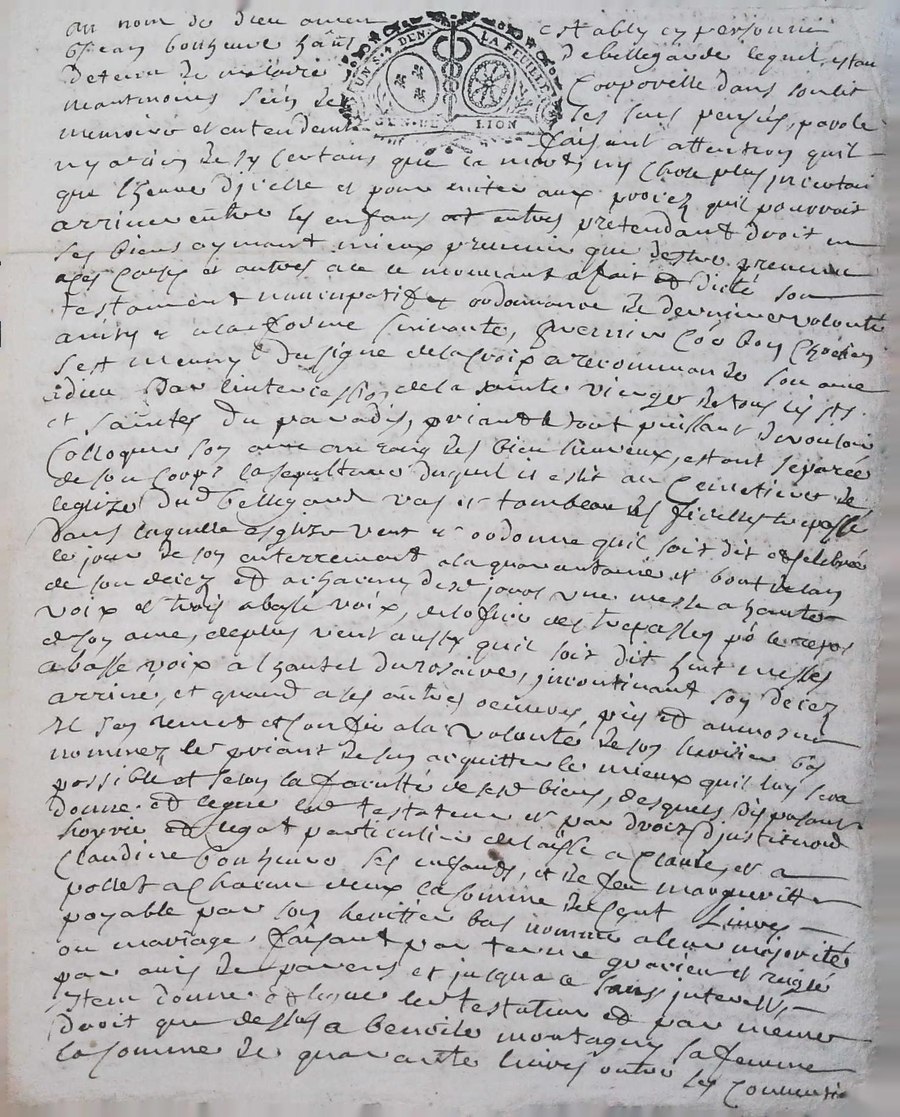 au nom de dieu amen estably en personne
Jean bonheure habt de bellegarde lequel estan
detenu de maladie corporelle dans son lit
neantmoins sein de ses sens pensées, parole
memoire et entendemt faisant attention quil
ny a rien de sy certains que la mort, ny chose plus incertain
que lheure dicelle et pour eviter aux procez quil pourroit
arriver entre ses enfans et autres pretendant droit en
ses biens aymant mieux prevenir que destre prevenu
a ses causes et autres a ce le mouvant a fait et dicté son
testament noncupatif et ordonnance de derniere volonté
ainsy & a la forme suivante, premier Coe bon chretien
s'est muny du signe de la croix a recommandé son ame
a dieu par lintercession de la sainte vierge de tous les sts
et saintes du paradis, priant le tout puissant de vouloir
Colloquer son ame au rang des bien heureux, estant séparée
de son corps la sepulture duquel il eslit au cemetiere de
leglize dud bellegarde vas et tombeau des fidelles trepassé
dans laquelle esglize veut et ordonne quil soit dit et celebré
le jour de son enterrement a la quarantaine et bout de lan
de son decez et a chacun desd jours une messe a haute
voix et trois a basse voix, de lofice des trepasses po le repos
de son ame, de plus veut aussy quil soit dit huit messes
a basse voix a lhautel du rosaire, incontinant son decez
arrivé, et quand a ses autres oeuvres, pies et aumosnes
Il sen remet et confie a la volonté de son heritier bas
nommez le priant de sen acquitter le mieux quil luy sera
possible et selon la faculté de sesd biens, desquels disposant
donne et legue led testateur et par droict dinstitution
hoyrie et legat particulier delaisse a Claude et a
Claudine bonheure ses enfants, et de feu margueritte
pollet a chacun deux la somme de cent Livres
payable par son heritier bas nommé a leur majorité
ou mariage faisant par terme gracieux et reiglé
par avis de parens et jusqua ce sans interests
Item donne et legue led testateur et par meme
droit que dessus a benoite montagny sa femme
la somme de quarante livres outre les